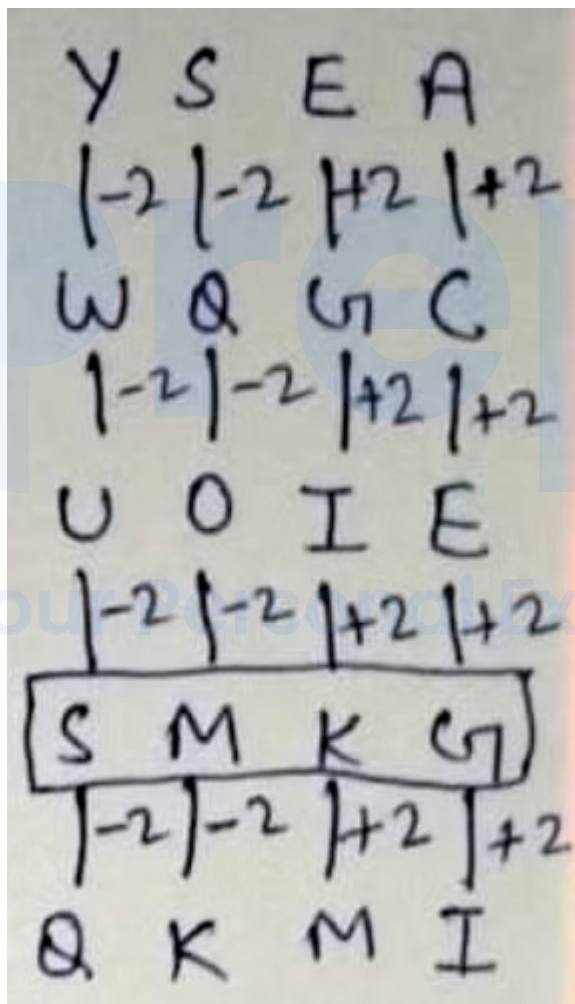 Y S E A
|-2 |-2 |+2 |+2
W Q G C
|-2 |-2 |+2 |+2
U O I E
|-2 |-2 |+2 |+2
S M K G
|-2 |-2 |+2 |+2
Q K M I